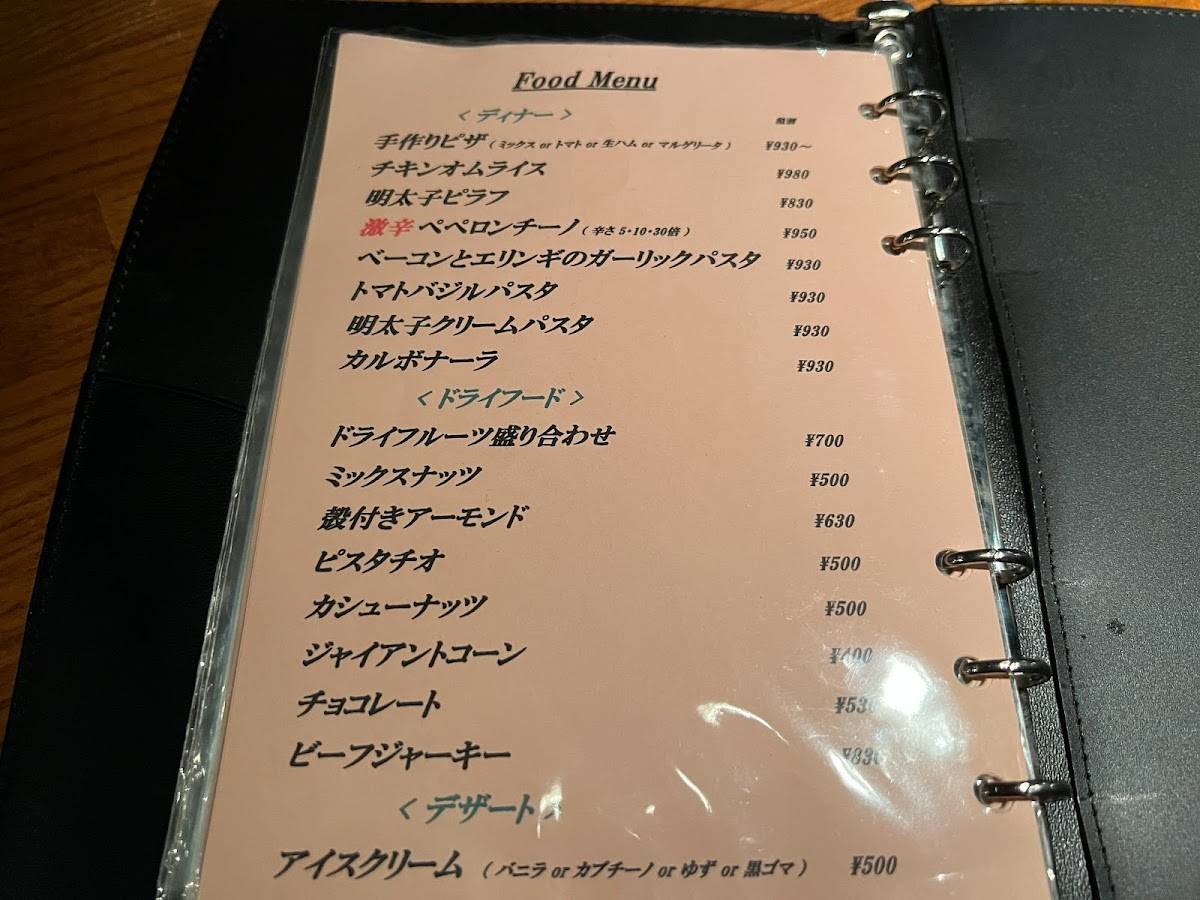 Food Menu
< ディナー >
税別
手作りピザ ( ミックス or トマト or 生ハム or マルゲリータ ) ¥930～
チキンオムライス ¥980
明太子ピラフ ¥830
激辛 ペペロンチーノ ( 辛さ 5・10・30倍 ) ¥950
ベーコンとエリンギのガーリックパスタ ¥930
トマトバジルパスタ ¥930
明太子クリームパスタ ¥930
カルボナーラ ¥930
< ドライフード >
ドライフルーツ盛り合わせ ¥700
ミックスナッツ ¥500
殻付きアーモンド ¥630
ピスタチオ ¥500
カシューナッツ ¥500
ジャイアントコーン ¥400
チョコレート ¥530
ビーフジャーキー ¥830
< デザート >
アイスクリーム ( バニラ or カプチーノ or ゆず or 黒ゴマ ) ¥500